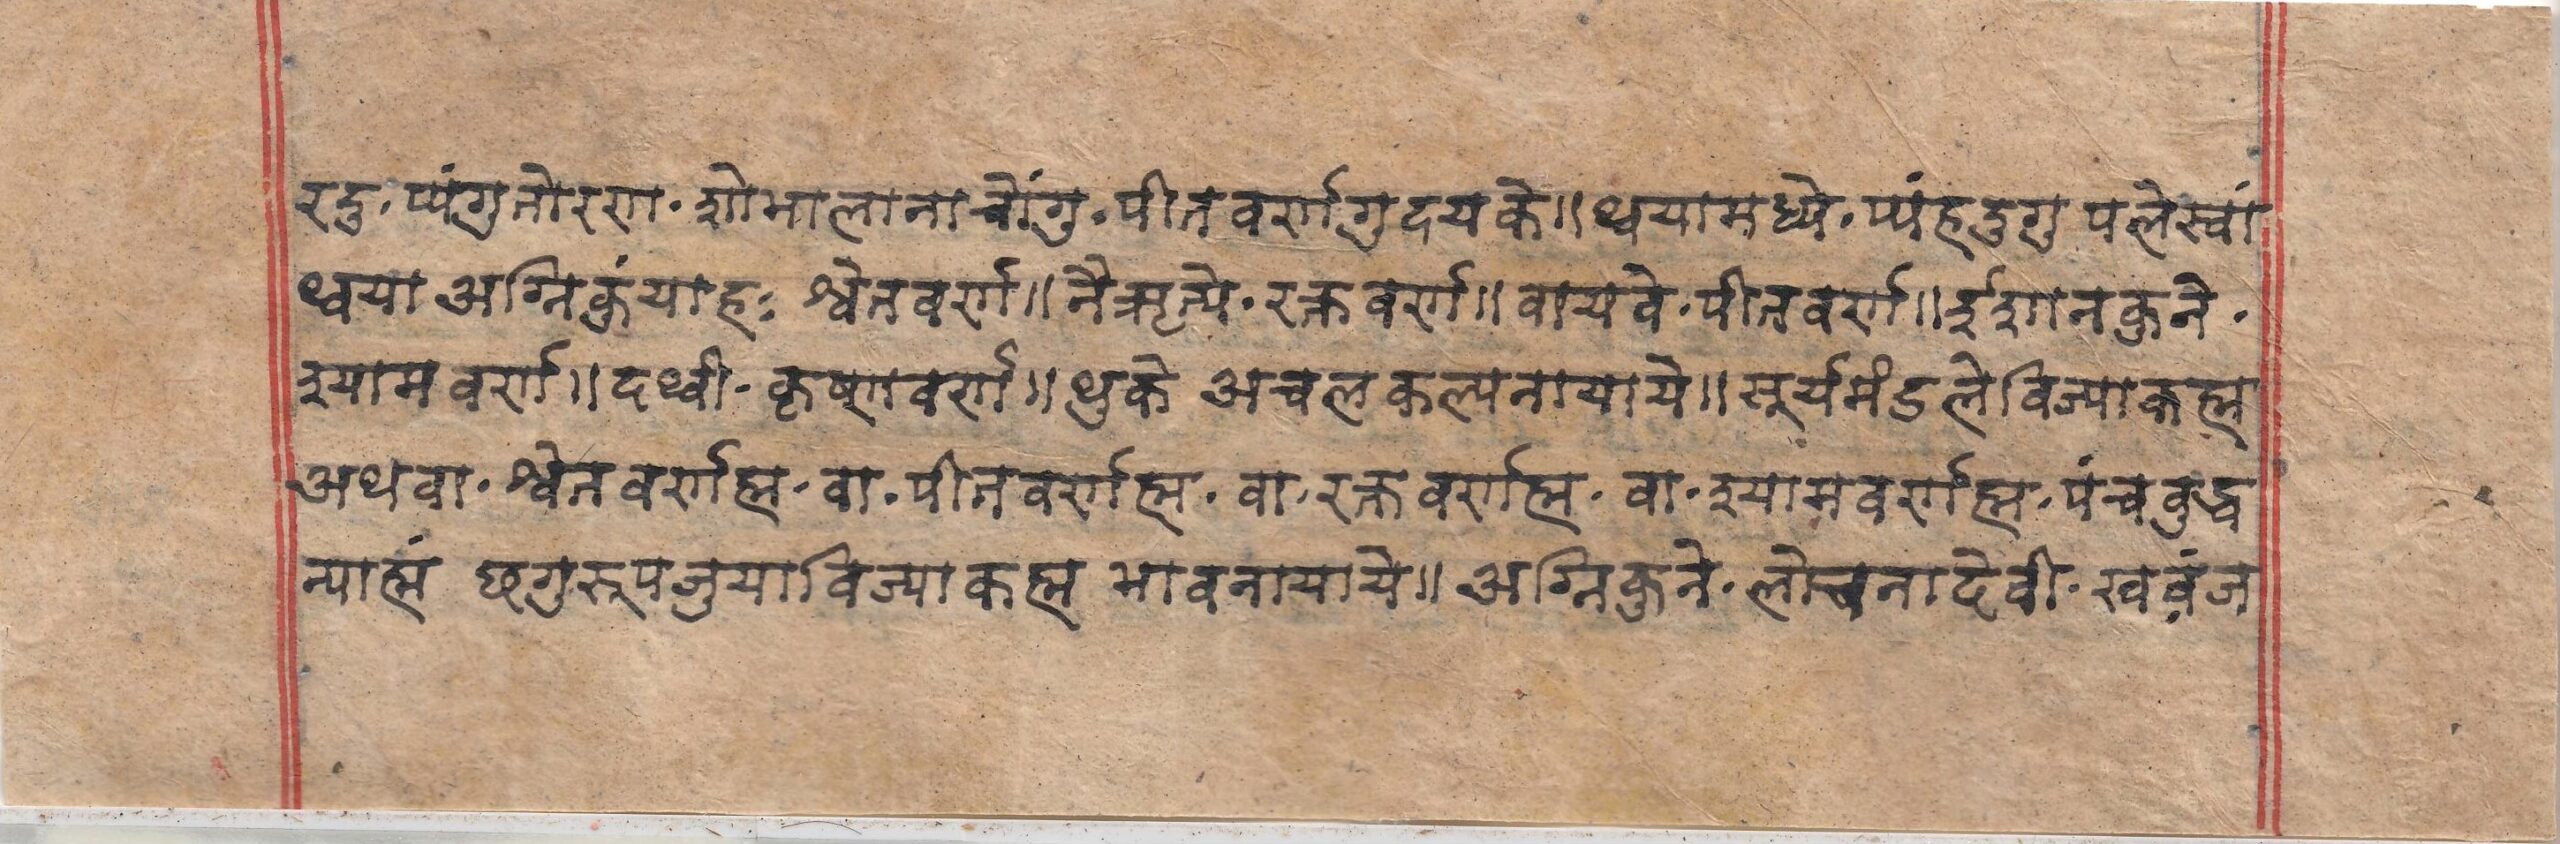 रदु · प्यंगु तोरण · शोभालानाचोंगु · पीतवर्णगु दयके॥ थ्वया मध्ये · प्यंहदुगु पलेस्वां
थ्वया अग्निकुंयाहः श्वेतवर्ण॥ नैऋत्ये · रक्तवर्ण॥ वायवे · पीतवर्ण॥ ईशानकुने ·
श्यामवर्ण॥ दथ्वी · कृष्णवर्ण॥ थुके अचल कल्पनायाये॥ सूर्यमंडले विज्याकह्म
अथवा · श्वेतवर्णह्म · वा · पीतवर्णह्म · वा · रक्तवर्णह्म · वा · श्यामवर्णह्म · पंचबुद्ध
न्याह्मं छगुरूपजुया विज्याकह्म भावनायाये॥ अग्निकुने · लोचनादेवी · खवंज